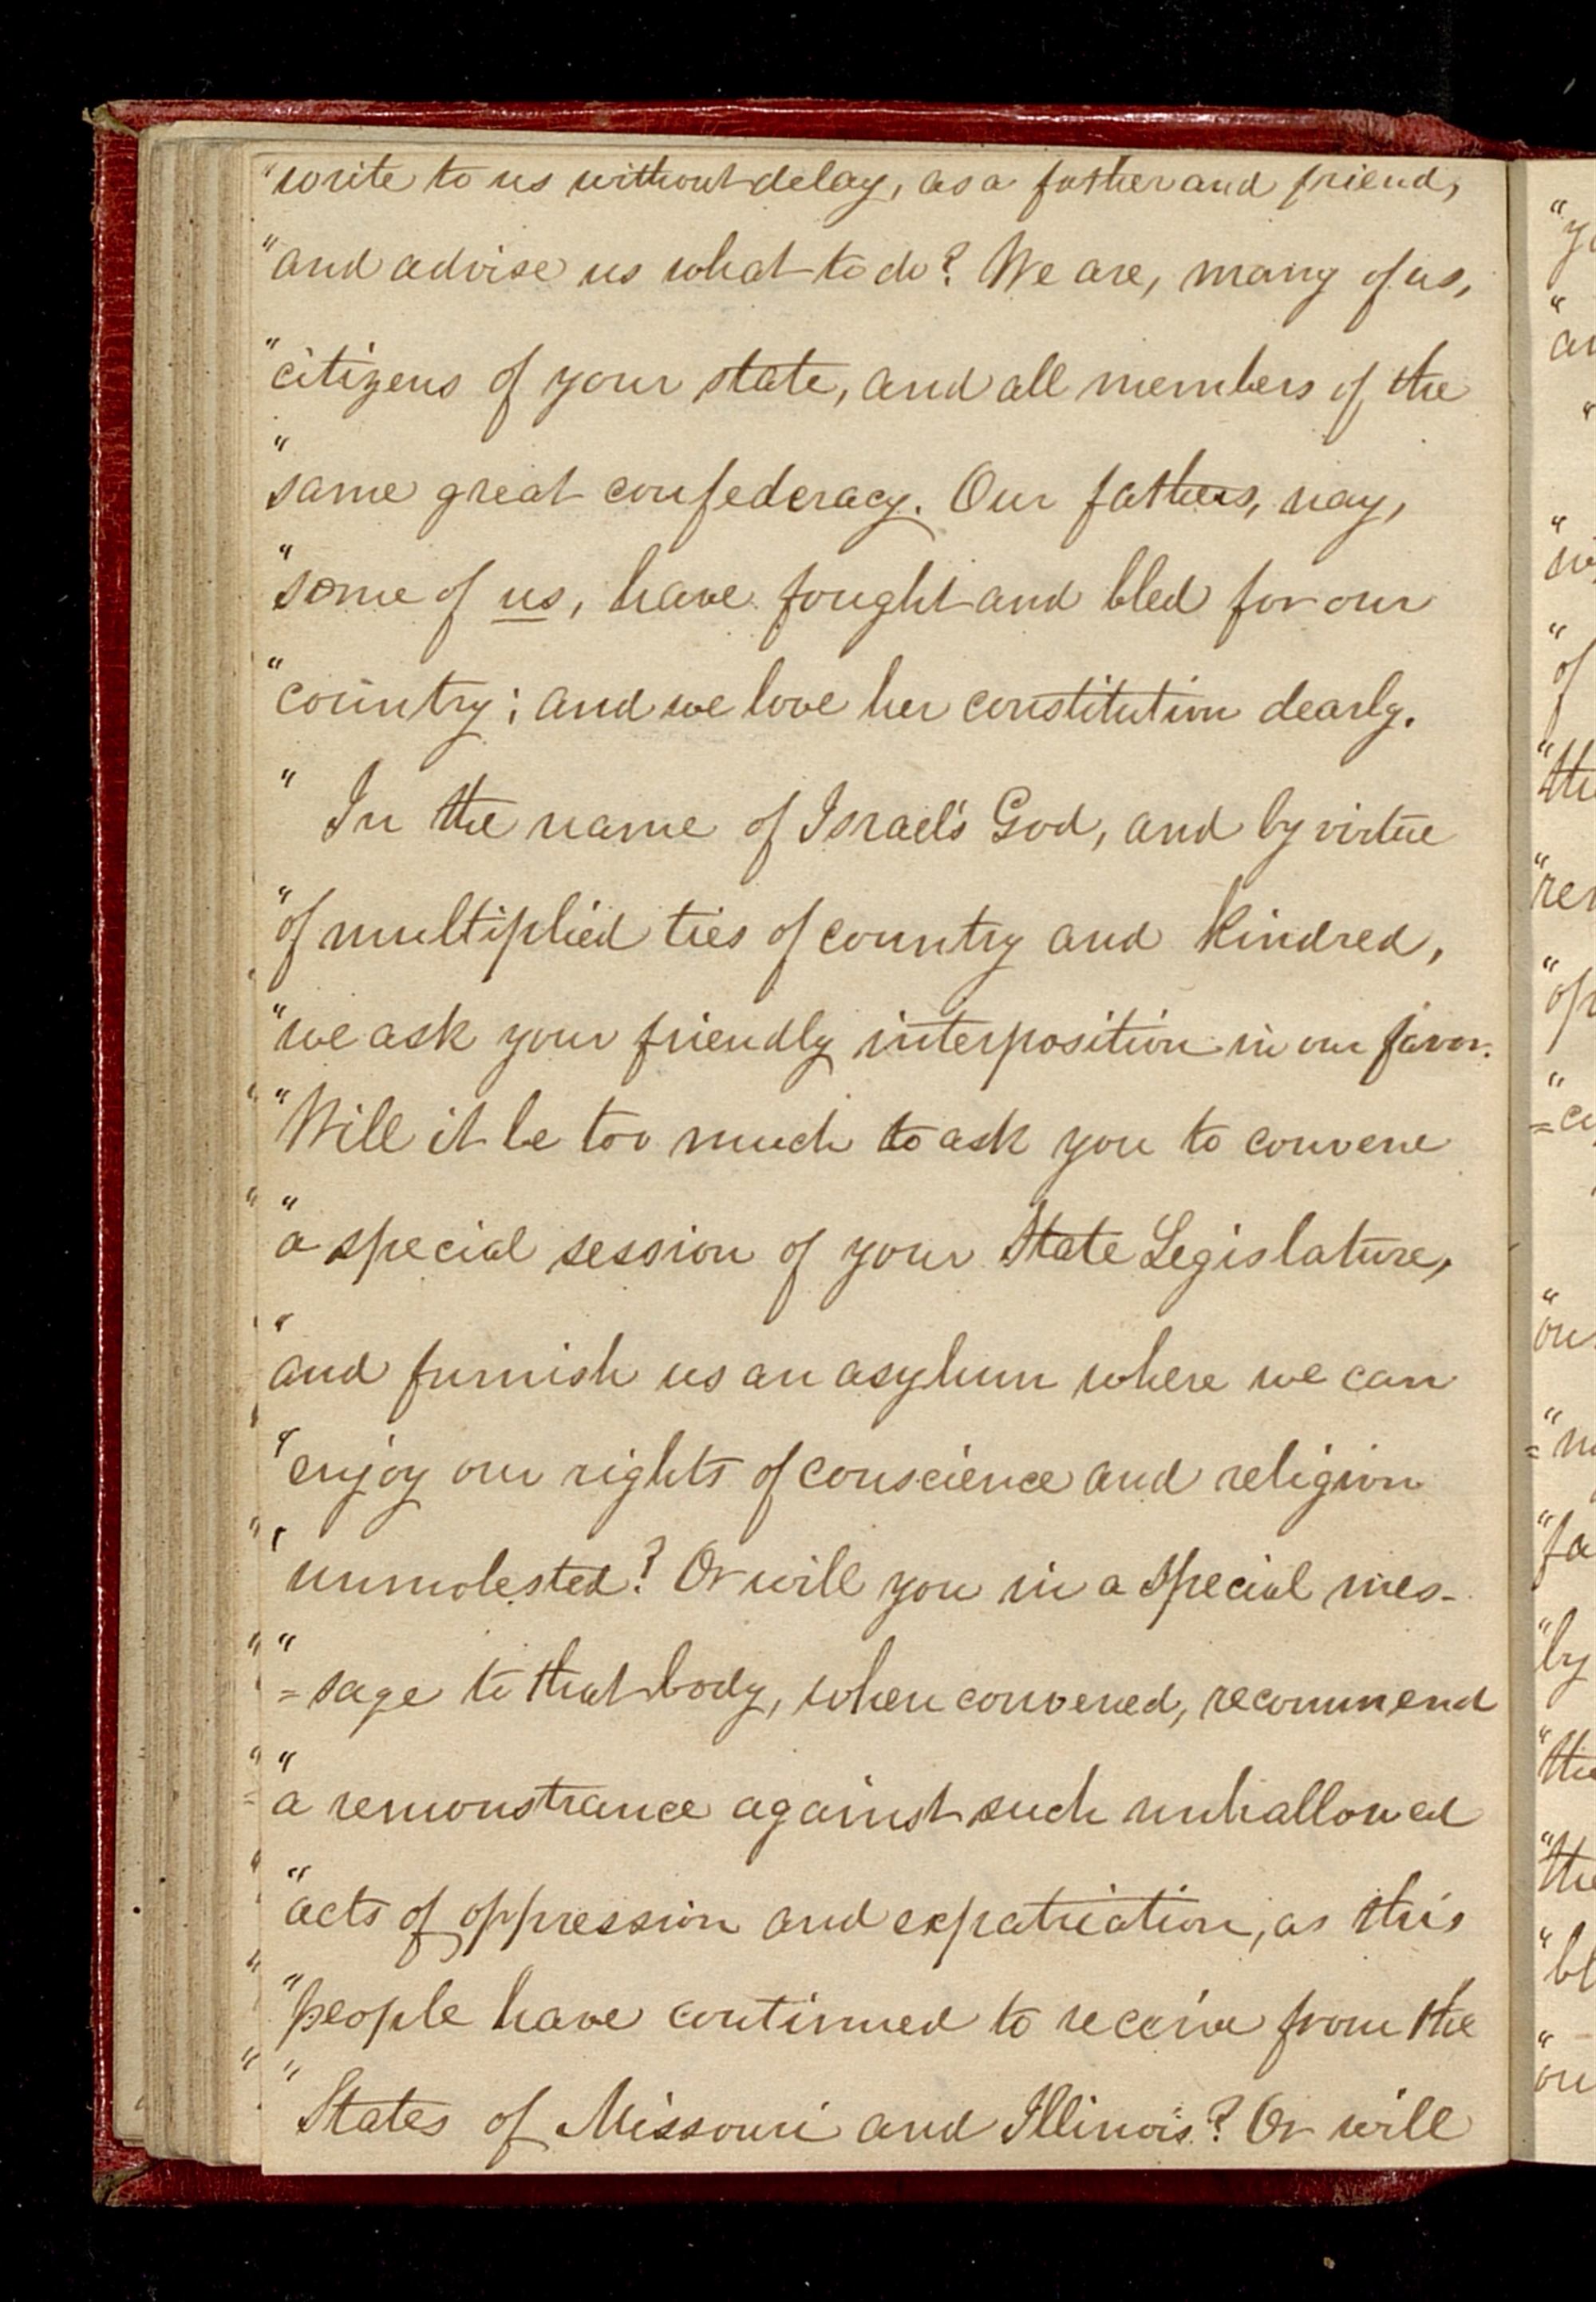 "write to us without delay, as a father and friend,
"and advise us what to do? We are, many of us,
"citizens of your state, and all members of the
"same great confederacy. Our fathers, nay,
"some of us, have fought and bled for our
"country; and we love her constitution dearly.
" In the name of Israel's God, and by virtue
"of multiplied ties of country and kindred,
"we ask your friendly interposition in our favor.
"Will it be too much to ask you to convene
"a special session of your State Legislature,
"and furnish us an asylum where we can
"enjoy our rights of conscience and religion
"unmolested? Or will you in a special mes-
"=sage to that body, when convened, recommend
"a remonstrance against such unhallowed
"acts of oppression and expatriation, as this
"people have continued to receive from the
"States of Missouri and Illinois? Or will